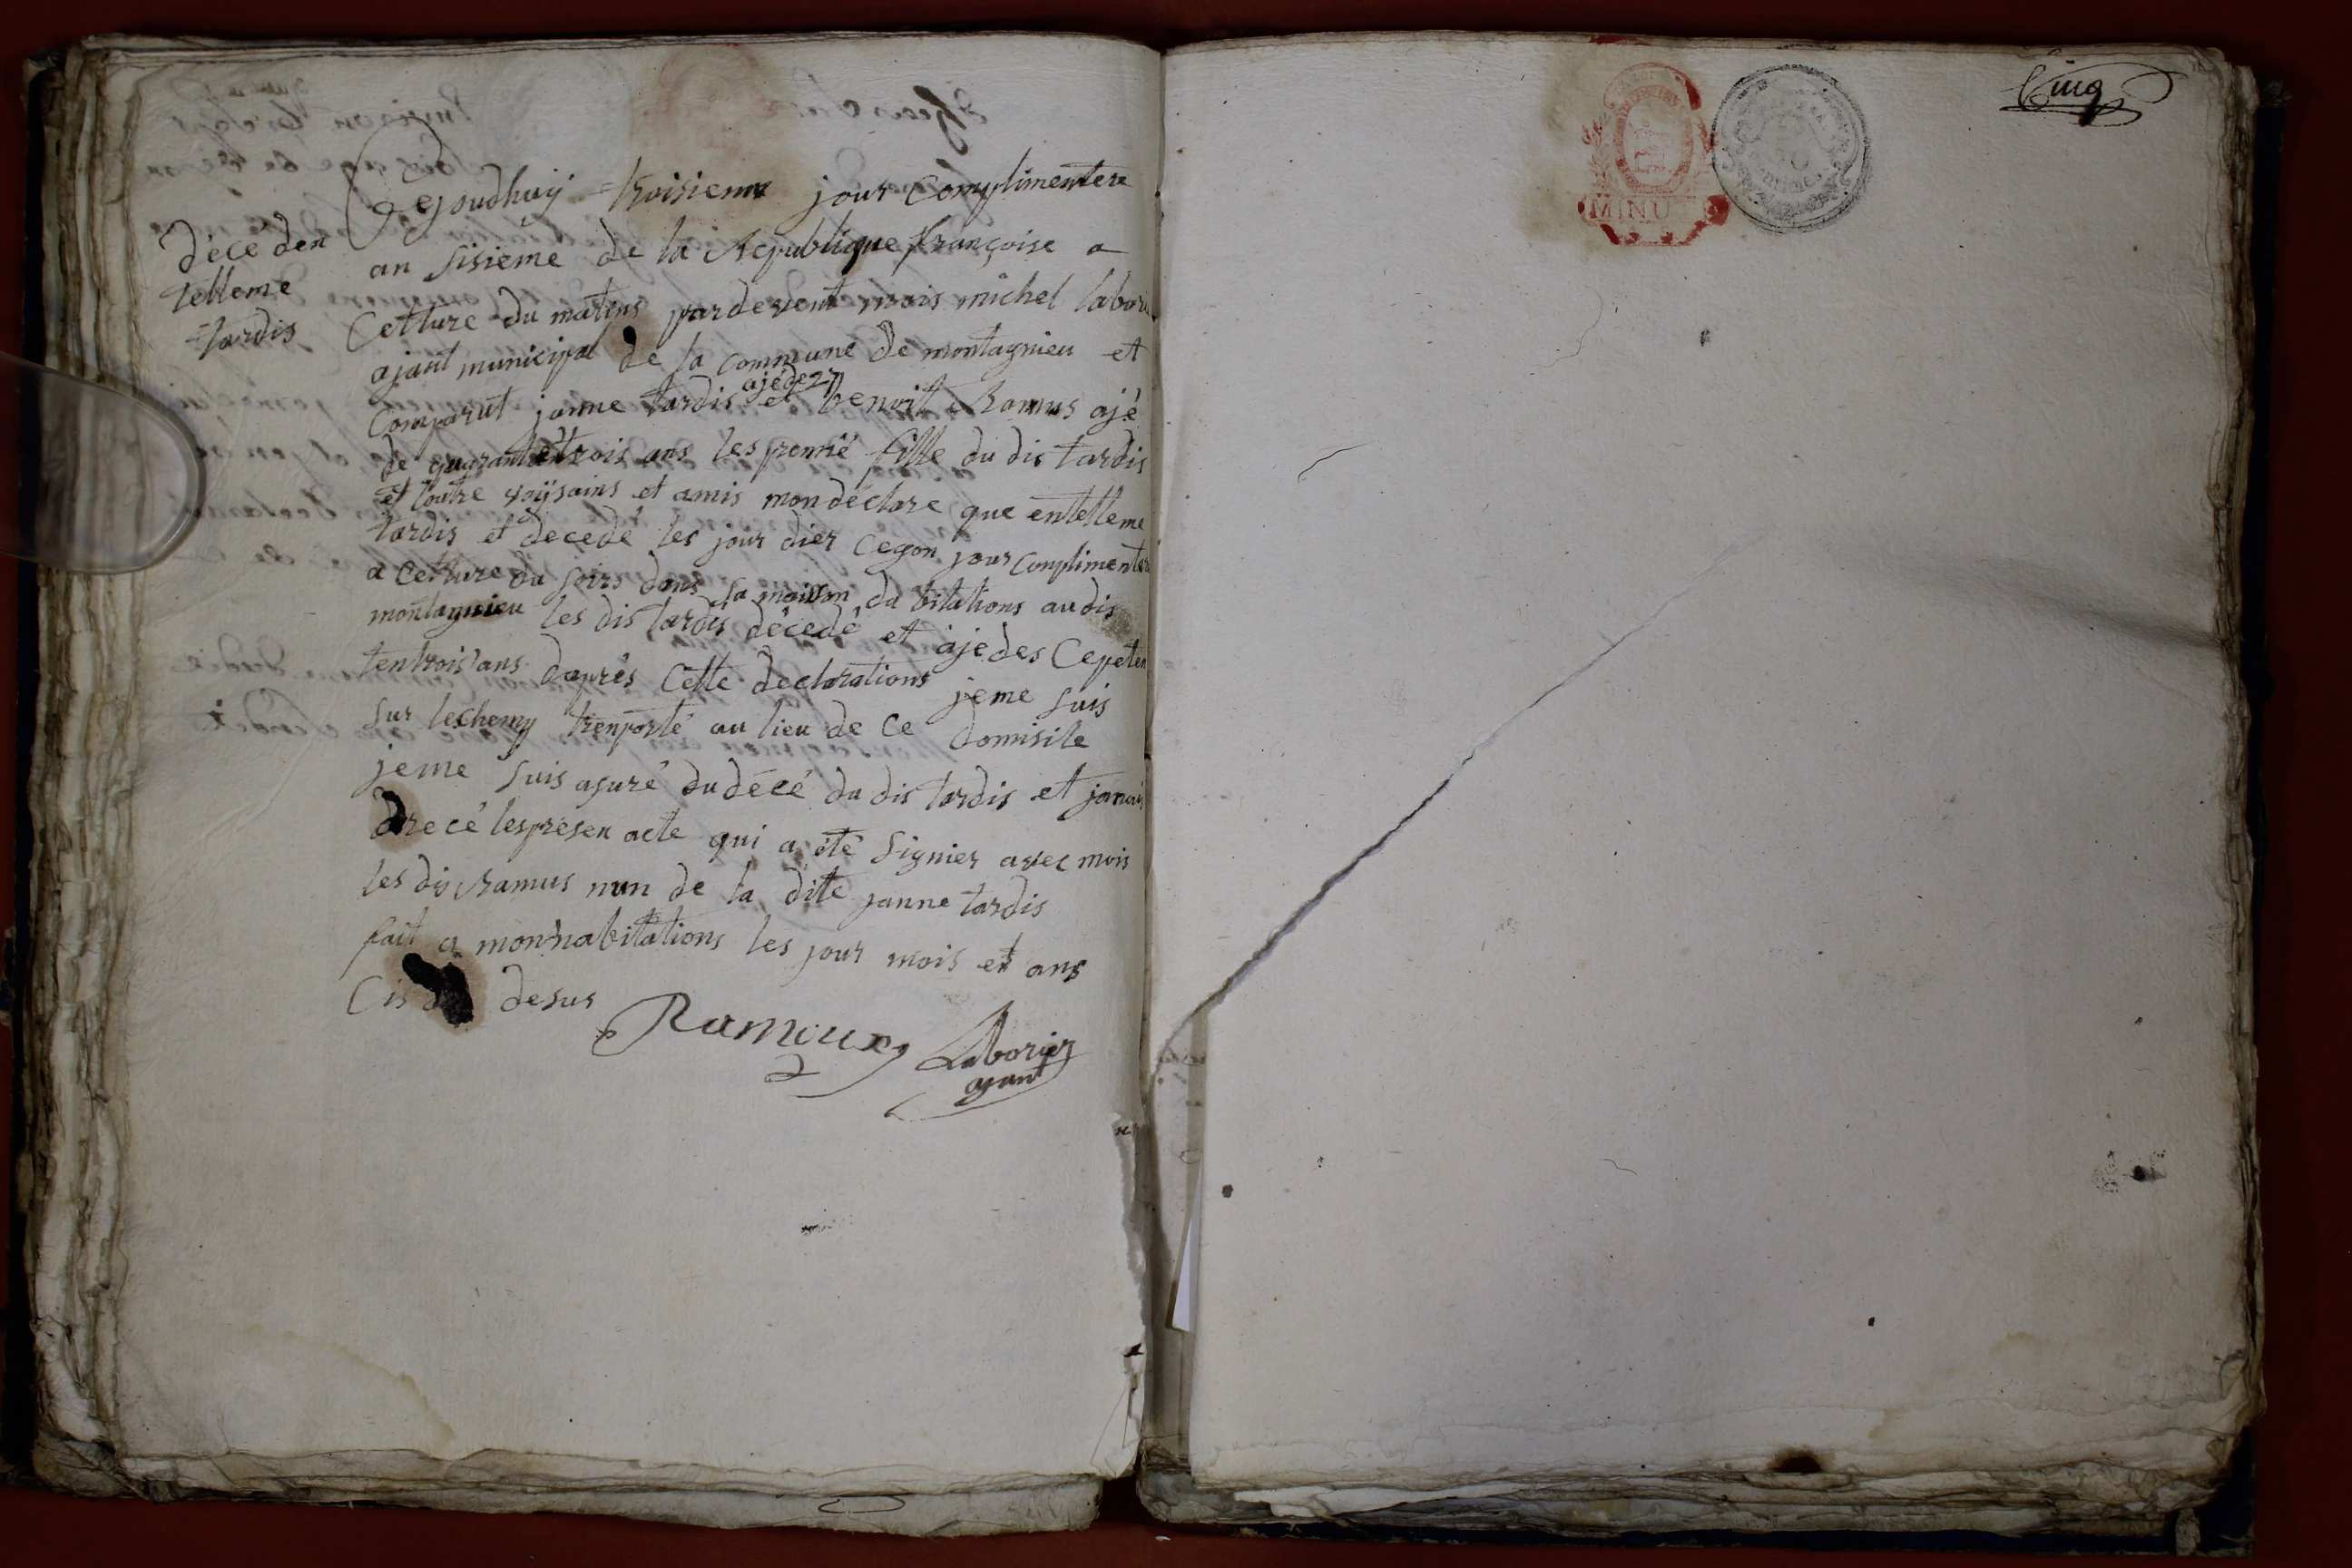 décé den
telleme
tardis
ejoudhuij troisieme jour Complimentere
an sisième de la Republique françoise a
Cetture du matins pardevent mois michel labori
ajant municipal de la commune de montagnieu et
Comparut janne tardis et benoit Ramus ajé
ajé de 27
de quarantetrois ans les premié fille du dis tardis
et loutre voijsains et amis mon déclare que entelleme
tardis et décedé les jour dier cegon jour Complimenter
a Cetture du soirs dans sa maison da bitations au dis
montagnieu les dis tardis décedé et aje des Cepeten
tentrois ans daprés Cette declarations jeme suis
sur leschemy trenporté au lieu de ce domisile
jeme suis asuré du décé du dis tardis et janais
drecé lespresen acte qui a été signier avec mois
les dis Ramus nun de la dite janne tardis
fait a mon habitations les jour mois et ans
Cis desus
Ramux
Laborier
ajant
Cinq
MINU